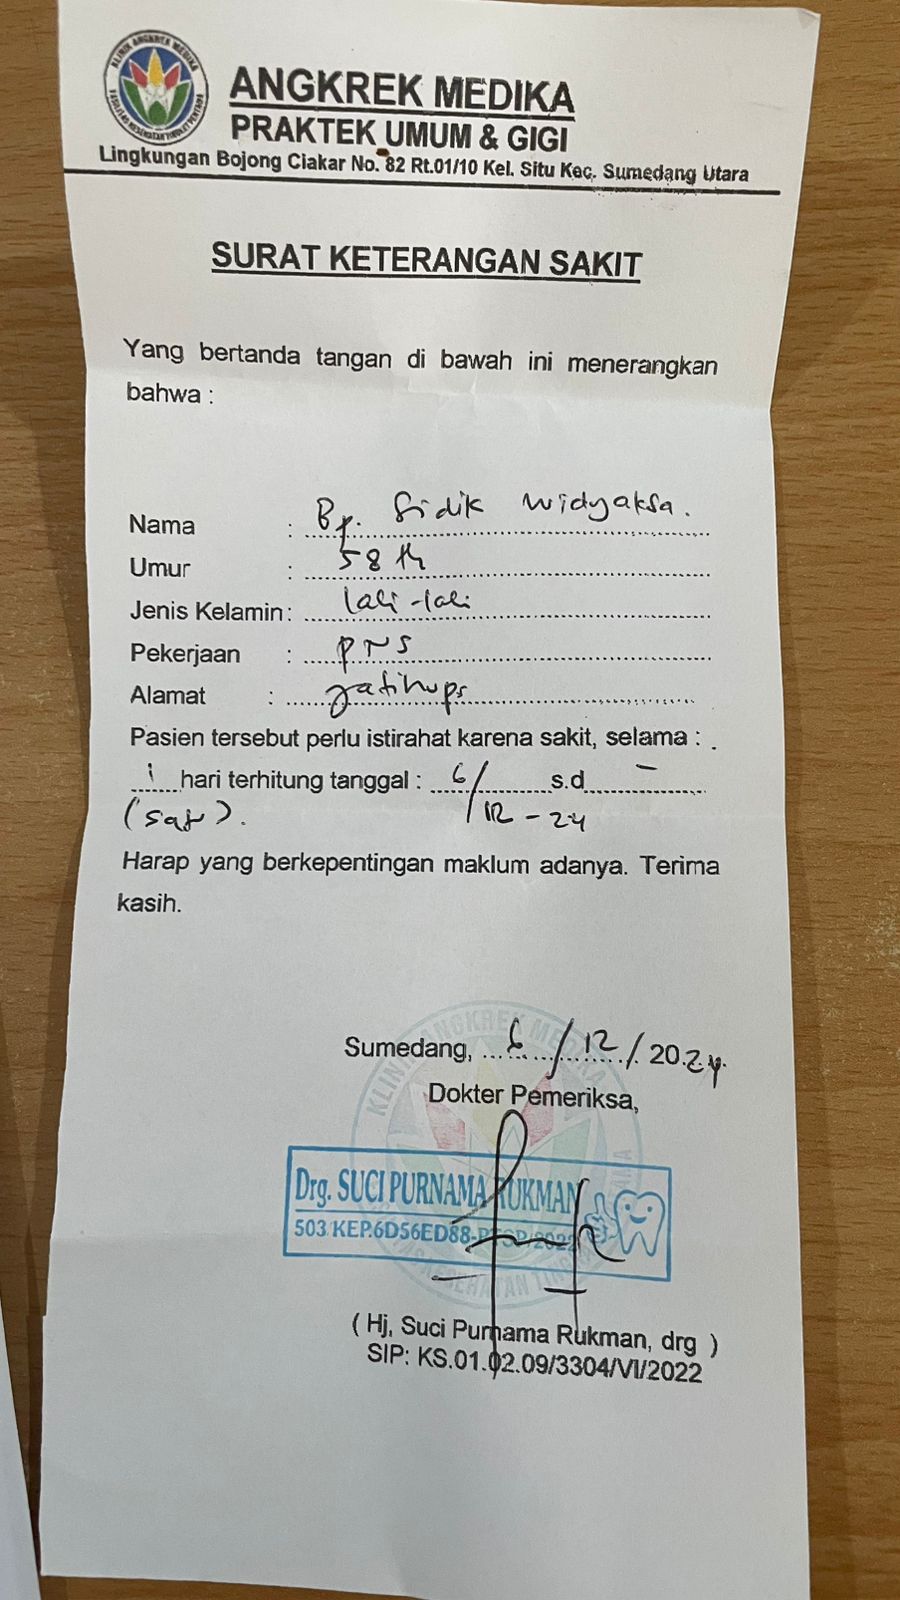 KLINIK ANGKREK MEDIKA
ANGKREK MEDIKA
PRAKTEK UMUM & GIGI
Lingkungan Bojong Ciakar No. 82 Rt.01/10 Kel. Situ Kec. Sumedang Utara
SURAT KETERANGAN SAKIT
Yang bertanda tangan di bawah ini menerangkan
bahwa :
Nama : Bp. Sidik Widyaksa.
Umur : 58 th
Jenis Kelamin: laki-laki
Pekerjaan : PNS
Alamat :
Pasien tersebut perlu istirahat karena sakit, selama :
1 hari terhitung tanggal : 6/12-24 s.d -
(satu).
Harap yang berkepentingan maklum adanya. Terima
kasih.
Sumedang, 6/12/2024.
Dokter Pemeriksa,
Drg. SUCI PURNAMA RUKMAN
503/KEP.6D56ED88-
(Hj, Suci Purnama Rukman, drg )
SIP: KS.01.02.09/3304/VI/2022